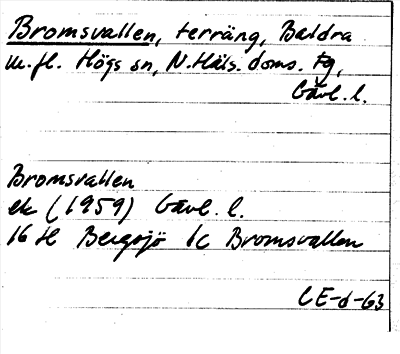 Bromsvallen, terräng, Baldra
m.fl. Högs sn, N.Häls. doms. tg,
Gävl. l.
Bromsvallen
ek (1959) Gävl. l.
16 H Bergsjö 1c Bromsvallen
CE-d-63